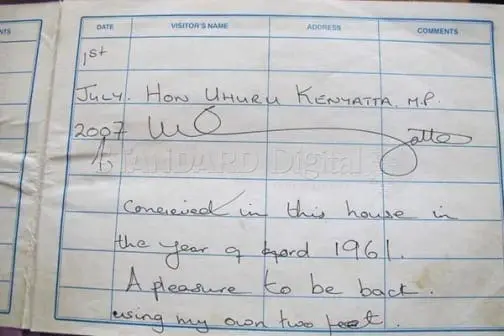 NTS DATE VISITOR'S NAME ADDRESS COMMENTS
1st
JULY. HON UHURU KENYATTA. M.P.
2007
STANDARD Digital
Conceived in this house in
the year of lord 1961.
A pleasure to be back.
using my own two feet